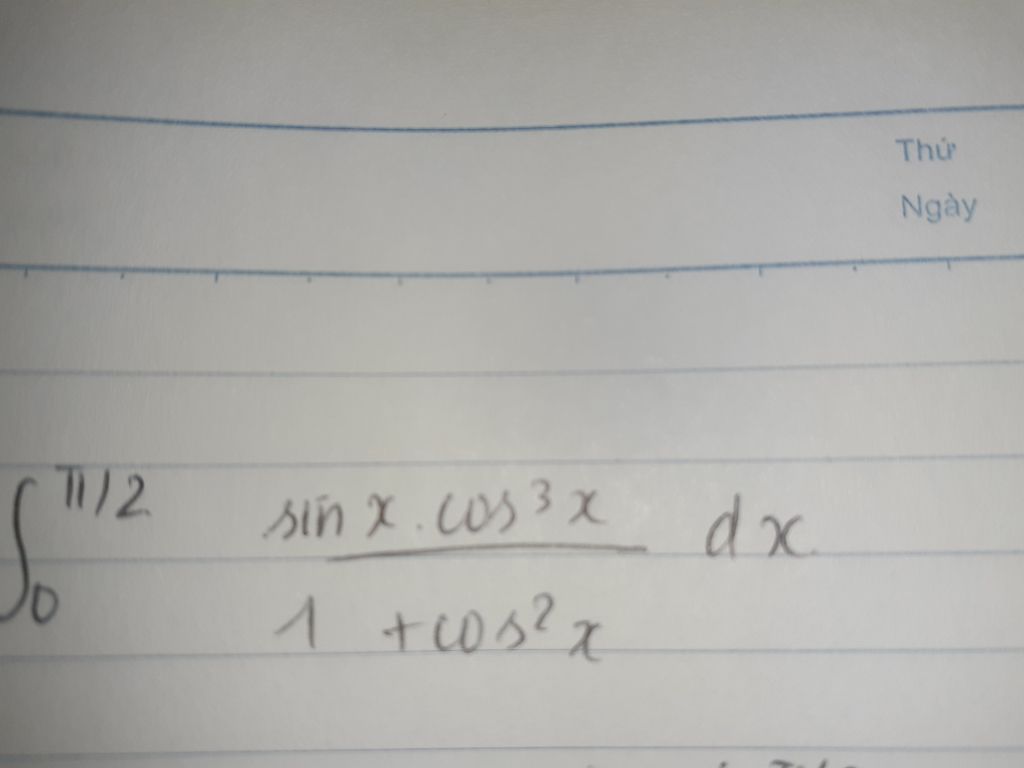 Thứ
Ngày
∫₀^π/2 (sin x . cos³x) / (1 + cos²x) dx